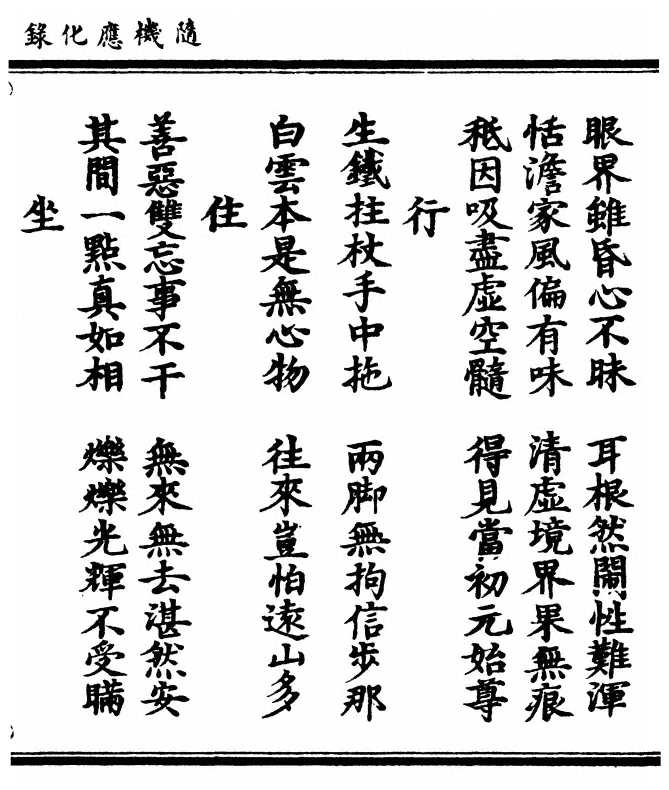 隨機應化錄
眼界雖昏心不昧　耳根然鬧性難渾
恬澹家風偏有味　清虛境界果無痕
秪因吸盡虛空髓　得見當初元始尊
行
生鐵拄杖手中拖　兩脚無拘信步那
白雲本是無心物　往來豈怕遠山多
住
善惡雙忘事不干　無來無去湛然安
其間一點真如相　爍爍光輝不受瞞
坐